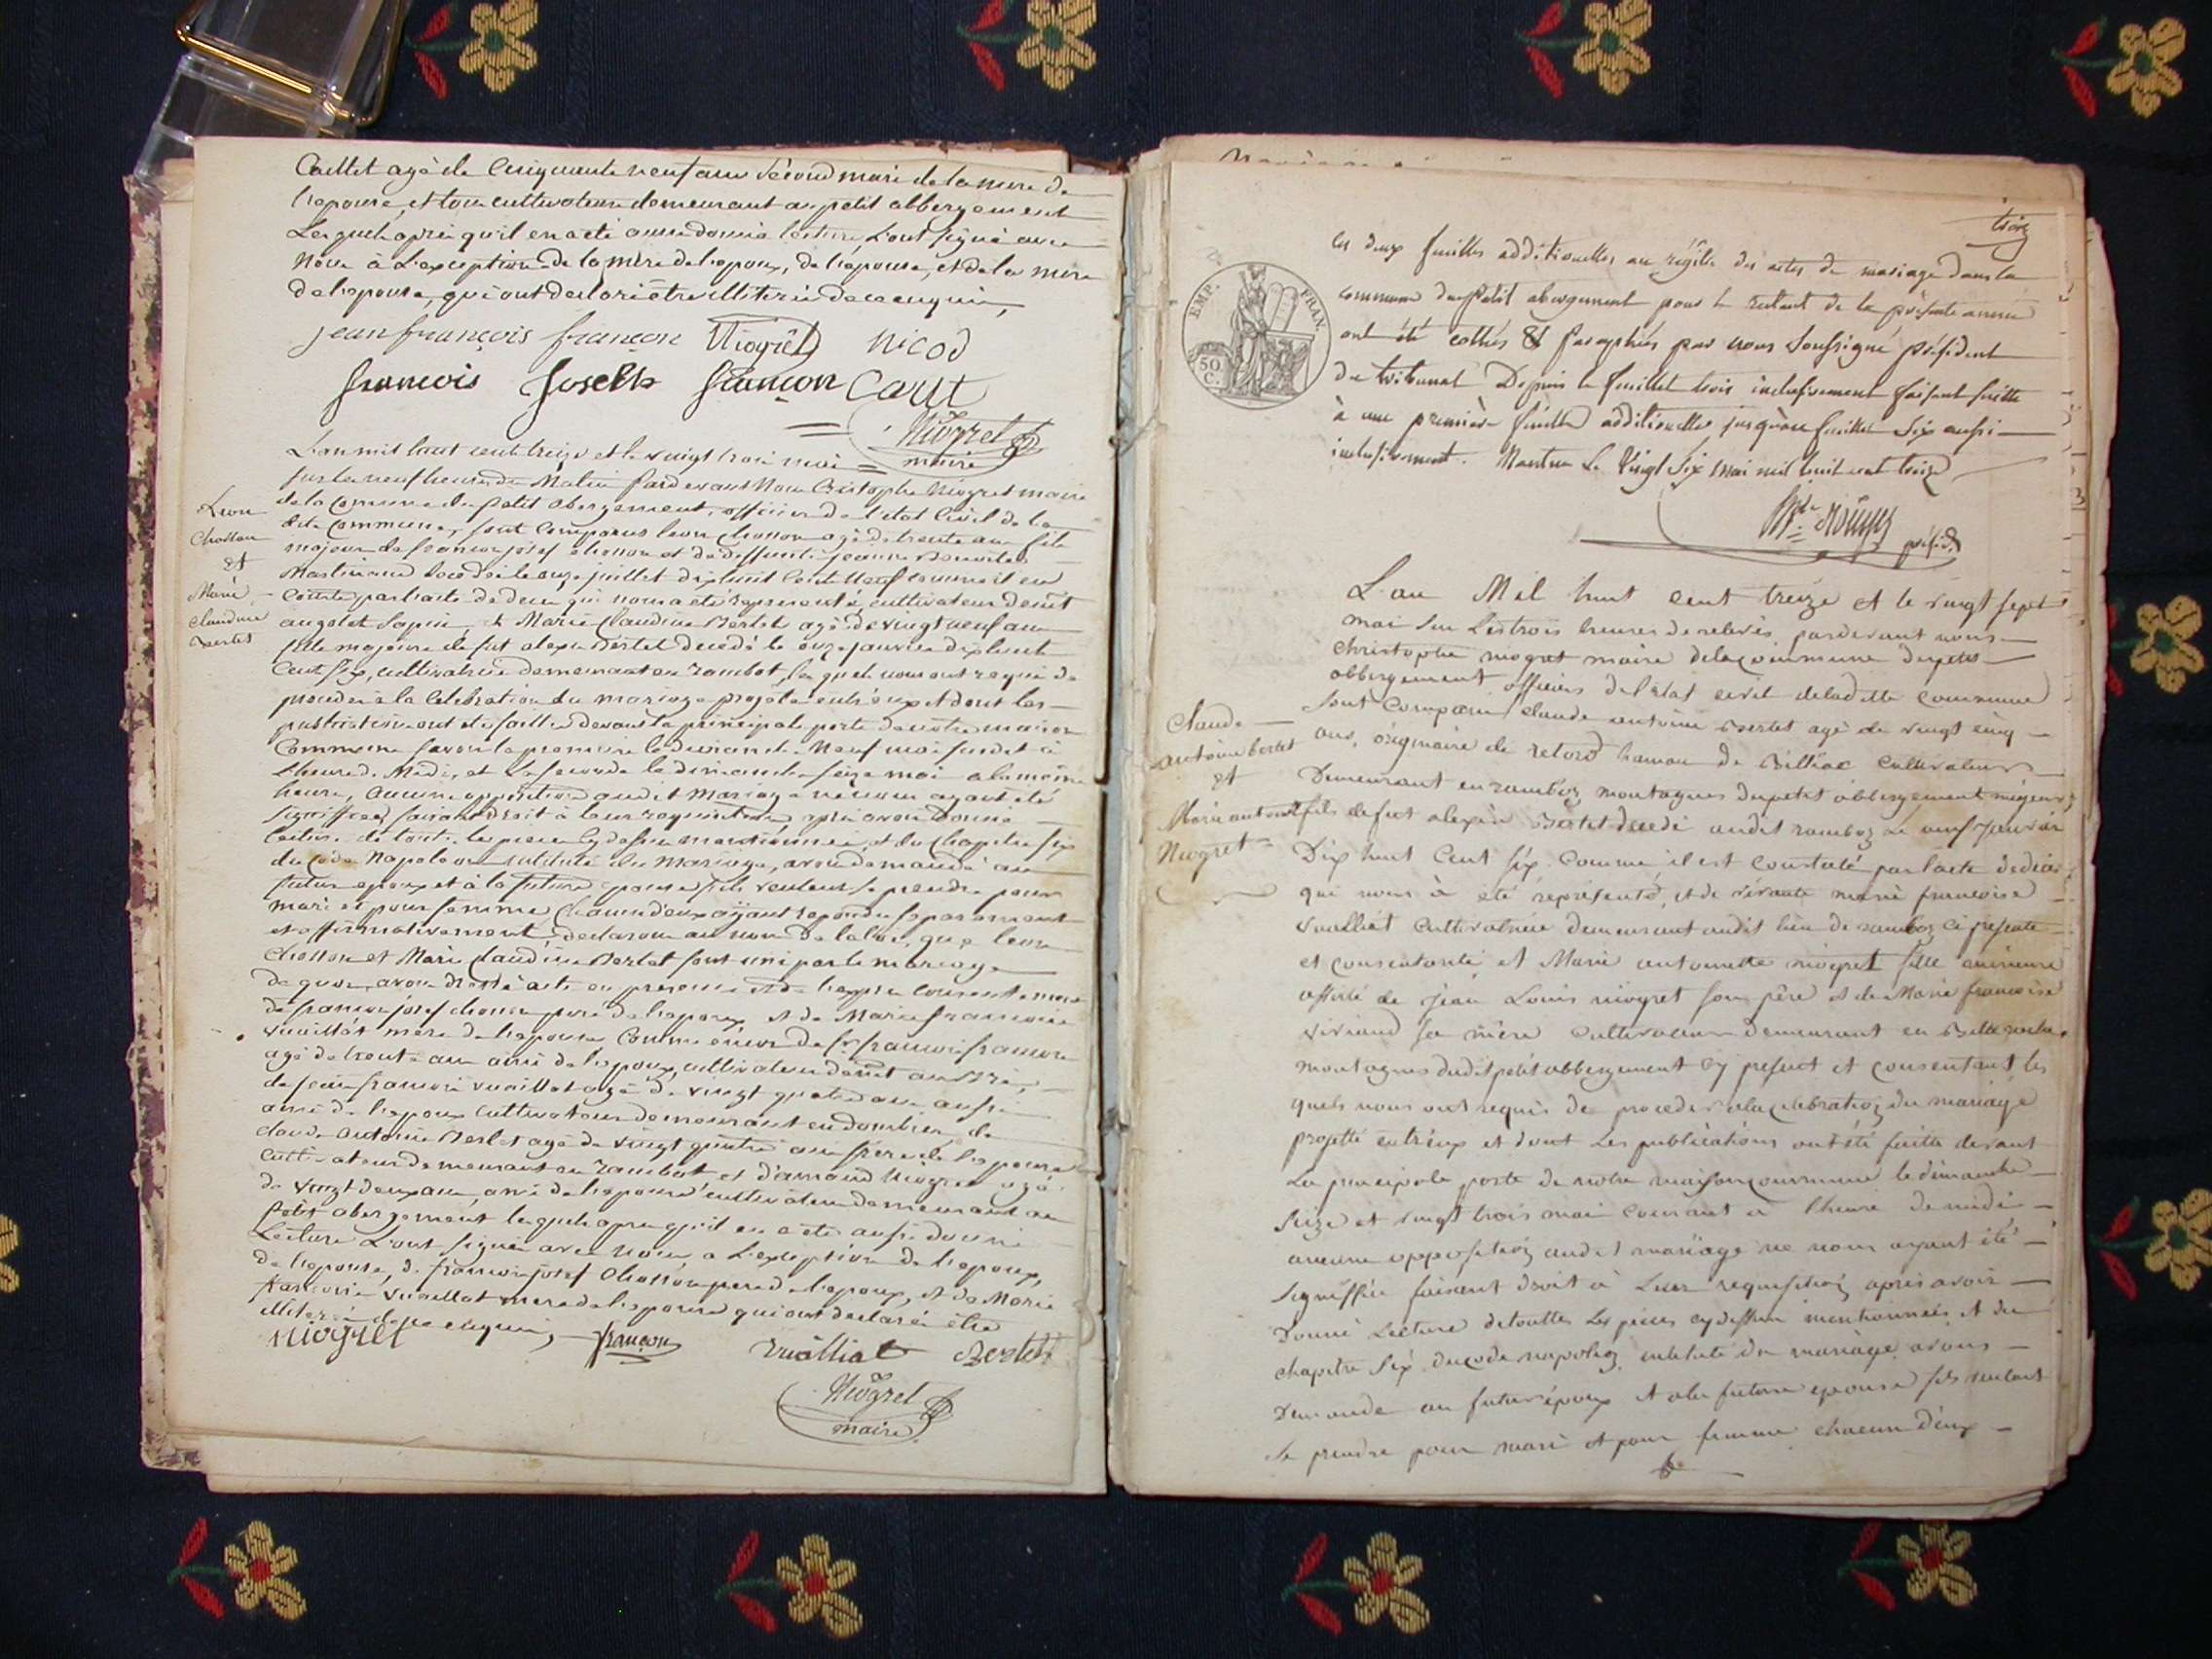 Caillet agé de Cinquante neuf ans second mari de la mere de
l'epouse, et tous cultivateurs demeurant au petit abbergement
Lesquels après qu'il en a été aussi donné lecture, L'ont signé avec
Nous à L'exception de la mère de l'epoux, de l'epouse, et de la mere
de l'epouse, qui ont declaré être illiteré de ce enquis,
jean françois françon Niogret Nicod
francois Joseph françon Carut
Niogret
maire
L'an mil huit cent treize et le vingt trois mai
sur les neuf heures du Matin pardevant Nous Cristophe Niogret maire
de la Commune du petit abergement, officier de l'état Civil de la
dite Commune, sont Comparus leon Chosson agé de trente ans fils
majeur de francois josef chosson et de deffunte jeanne
decedée le onze juillet dix huit Cent Neuf comme il est
Constaté par l'acte de deces qui nous a été representé, cultivateur
et Marie Claudine Bertet agé de vingt neuf ans
fille majeure de fut alexis Bertet decedé le onze janvier dix huit
Cent six, cultivatrice demeurant en rambot, lesquels nous ont requis de
proceder à la Celebration du mariage projeté entr'eux et dont les
publications ont été faittes devant la principale porte de notre maison
Commune savoir la premiere le dimanche Neuf mai
l'heure de Midi, et La seconde le dimanche seize mai a la même
heure, aucune opposition audit Mariage ne nous ayant été
signiffiée, faisant droit à leur requisition, après avoir donné
lecture de toutes les pieces cy dessus mentionnées, et du Chapitre six
du Code Napoleon intitulé du Mariage, avons demandé au
futur epoux et à la future epouse s'ils veulent se prendre pour
mari et pour femme, Chacun d'eux ayant repondu separement
et affirmativement, declarons au nom de la loi, que leon
Chosson et Marie Claudine Bertet sont unis par le mariage
de quoi, avons dressé acte en presence et de l'expres consentement
de francois josef chosson pere de l'epoux et de Marie francoise
Vuaillat mere de l'epouse Comme encor de francois francon
agé de trente ans ami de l'epoux, cultivateur
de jean francois vuaillat agé de vingt quatre ans aussi
ami de l'epoux Cultivateur demeurant en dombier, de
claude antoine Bertet agé de vingt quatre ans frere de l'epouse
cultivateur demeurant en rambot et d'armand Niogret agé
de vingt deux ans, ami de l'epouse cultivateur demeurant au
petit abergement lesquels apres qu'il en a été aussi donné
Lecture L'ont signé avec Nous, a L'exception de l'epoux,
de l'epouse, de francois josef Chosson pere de l'epoux, et de Marie
francoise vuaillat mere de l'epouse qui ont declaré être
illiteré de ce enquis,
niogret françon Vuâlliat Bertet
Niogret
maire
Leon
Chosson
et
Marie
claudine
Bertet
trois
EMP. FRAN.
50 C.
les deux feuilles additionelles au régitre des actes de mariage dans la
commune du Petit abergement pour le restant de la présente année
ont été cottées & paraphées par nous soussigné président
du tribunal Depuis le feuillet trois inclusivement faisant suitte
à une première feuille additionelle jusqu'au feuillet six aussi
inclusivement. Nantua Le Vingt six mai mil huit cent treize
présid.
L'an Mil huit cent treize et le vingt sept
mai sur Les trois heures de relevée, pardevant nous
christophe niogret maire de la commune du petit
abbergement officier de l'état civil de ladite commune
sont Comparu claude antoine Bertet agé de vingt cinq
ans, originaire de retord hameau de Billiac cultivateur
Demeurant en ramboz montagnes du petit abbergement majeur
fils de fut alexis Bertet decedé audit ramboz le onze Janvier
Dix huit Cent six. Comme il est Constaté par l'acte de deces
qui nous à été représenté, et de vivante marie francoise
vuailliat Cultivatrice demeurant audit lieu de ramboz ci presente
et consentante, et Marie antoinette niogret fille mineure
assisté de jean Louis niogret son père et de Marie francoise
viviand sa mère Cultivateurs demeurant en Belleroche
montagnes dudit petit abbergement cy present et consentant les
quels nous ont requis de proceder a la celebration du mariage
projetté entr'eux et dont Les publications ont été faitte devant
La principale porte de notre maison commune le dimanche
seize et vingt trois mai courant a l'heure de midi
aucune opposition audit mariage ne nous ayant été
signiffiée faisant droit à Leur requisition, après avoir
Donné Lecture de touttes Les pieces cy dessus mentionnées et du
chapitre six du code napoleon intitulé du mariage avons
Demandé au futur époux et a la future epouse s'ils veulent
se prendre pour mari et pour femme chacun d'eux
Claude
antoine bertet
et
Marie antoinette
Niogret